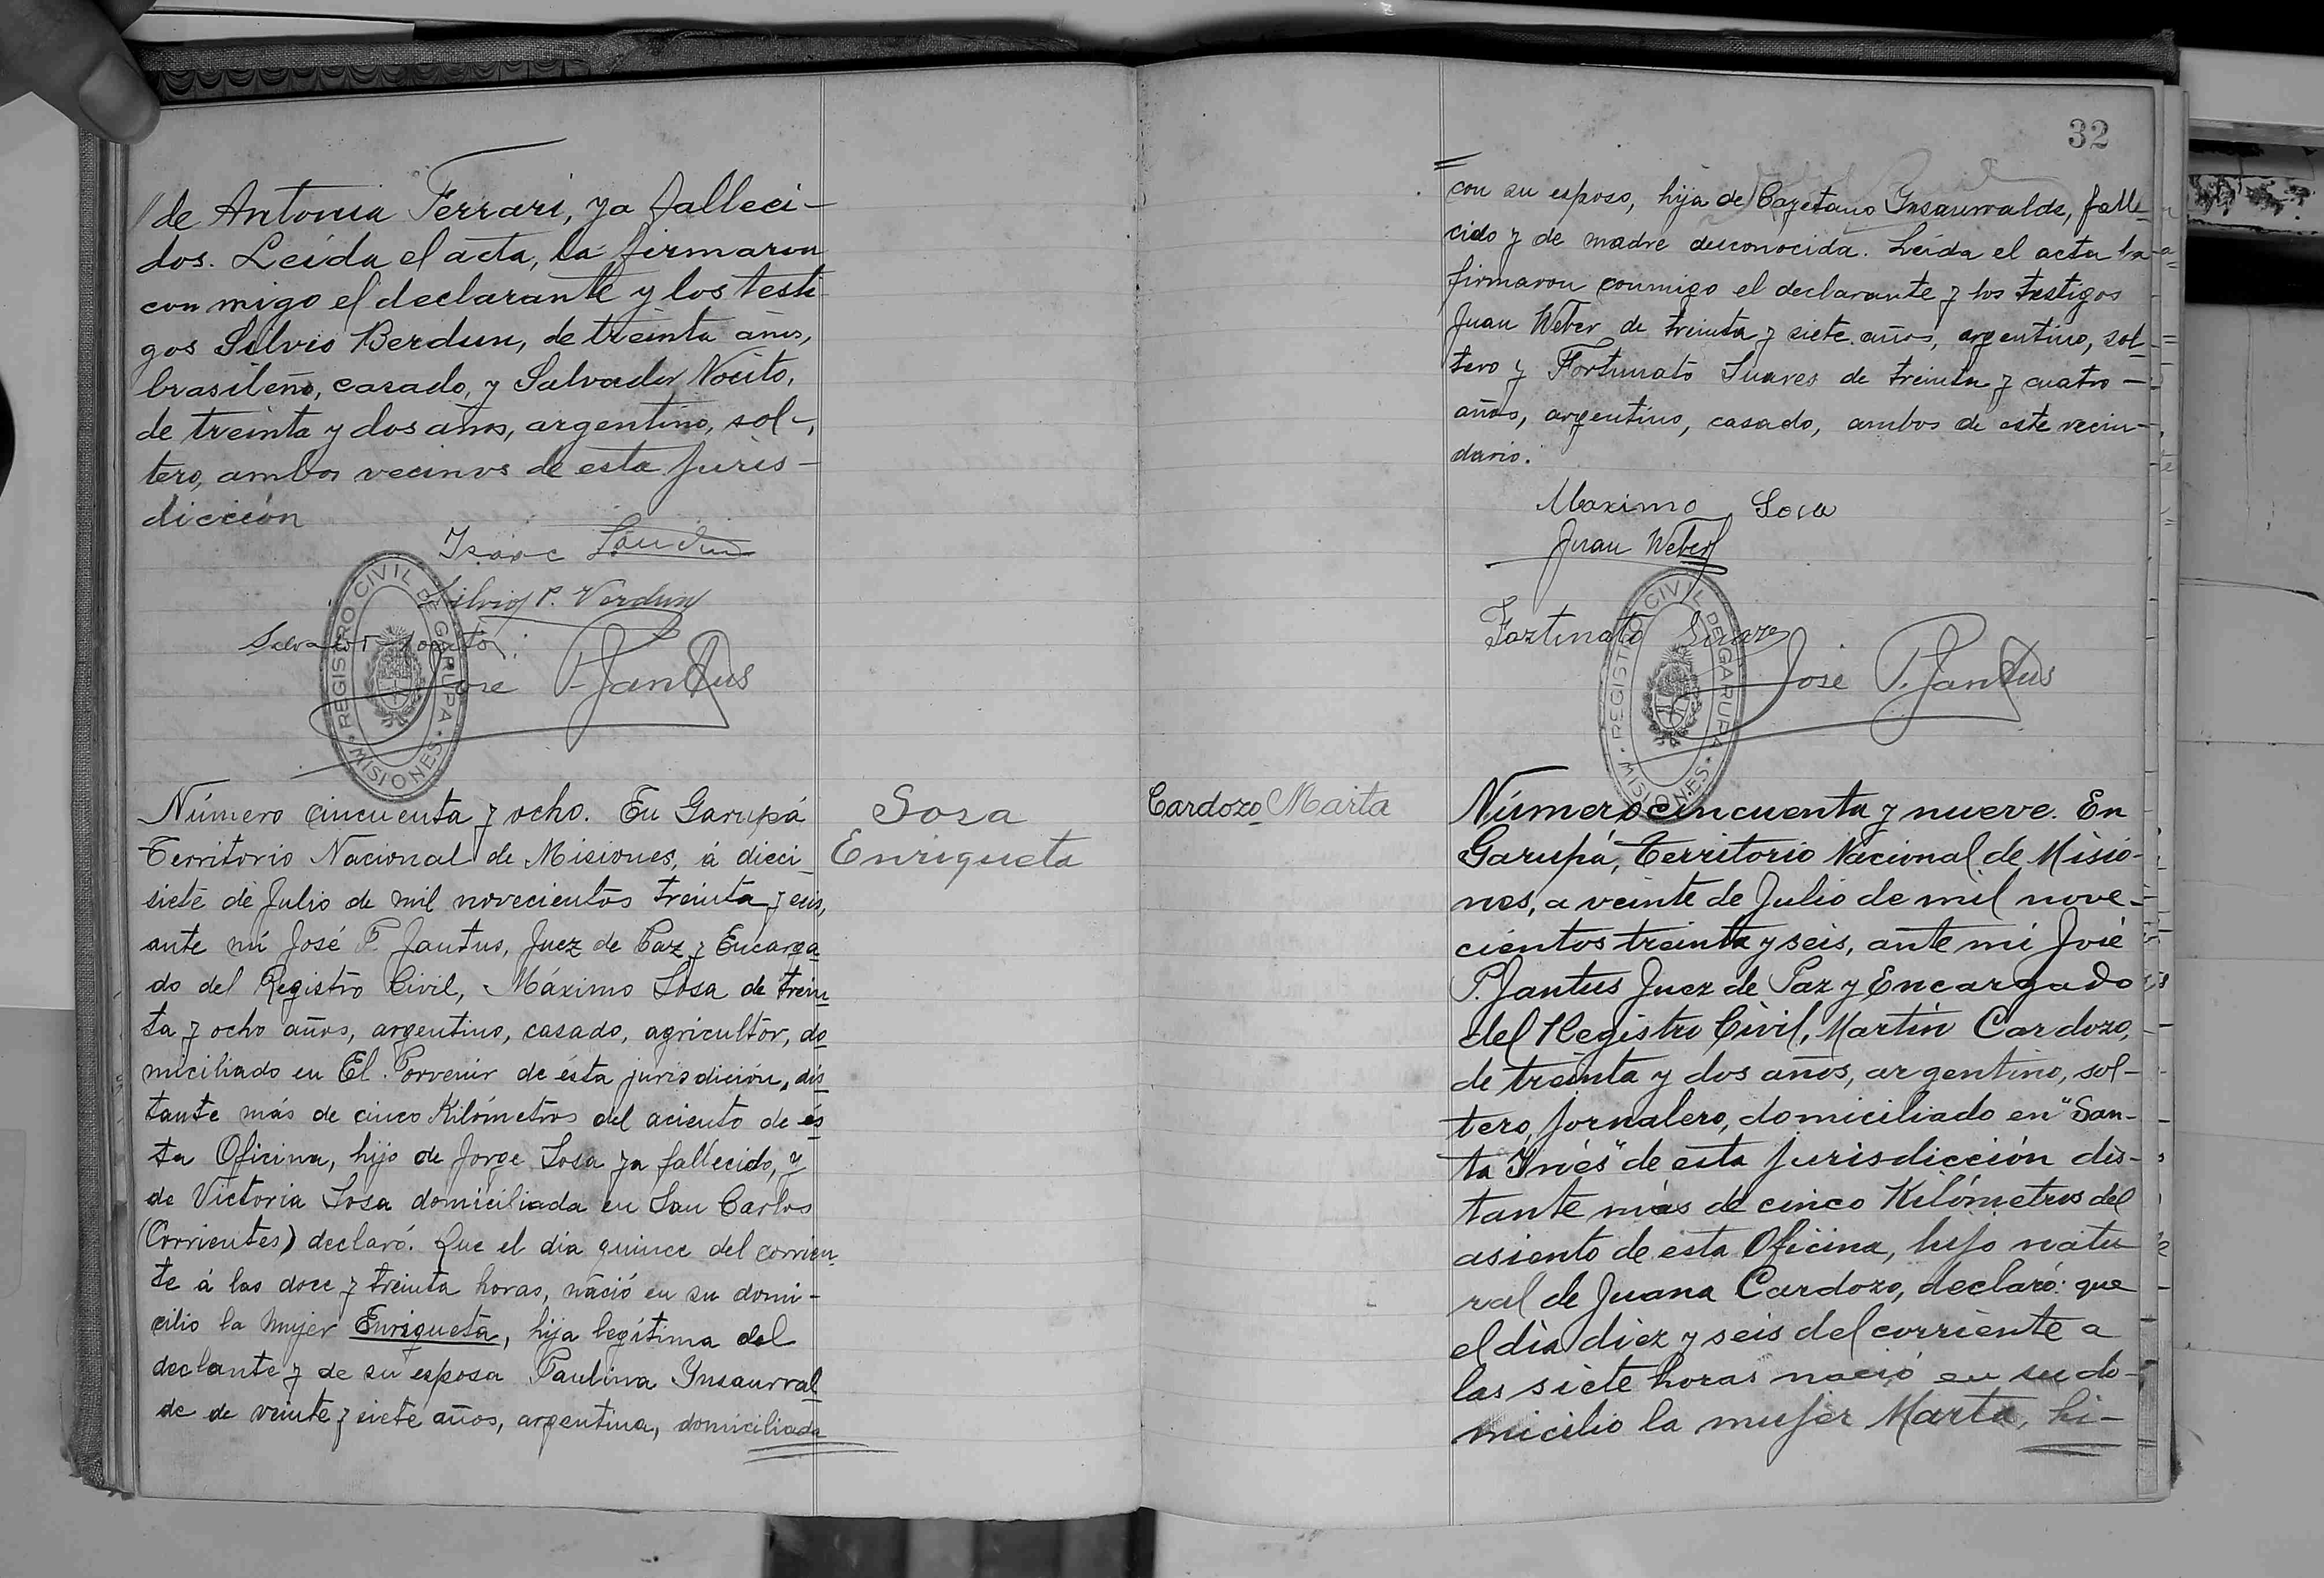 // de Antonia Ferrari, ya falleci-
dos. Leída el acta, la firmaron
con migo el declarante y los testi
gos Silvio Berdun, de treinta años,
brasileño, casado, y Salvador Nocito,
de treinta y dos años, argentino, sol-
tero, ambos vecinos de esta juris-
dicción
Isaac
Silvio P. Verdun
Salvador
José P. Jantus
REGISTRO CIVIL DE GARUPA
MISIONES
Número cincuenta y ocho. En Garupá
Territorio Nacional de Misiones, á dieci
siete de Julio de mil novecientos treinta y seis,
ante mí José P. Jantus, Juez de Paz y Encarga
do del Registro Civil, Máximo Sosa de trein
ta y ocho años, argentino, casado, agricultor, do
miciliado en El Porvenir de ésta jurisdición, dis
tante más de cinco Kilómetros del aciento de és
ta Oficina, hijo de Jorge Sosa ya fallecido, y
de Victoria Sosa domiciliada en San Carlos
(Corrientes) declaró. Que el día quince del corrien
te á las doce y treinta horas, nació en su domi-
cilio la mujer Enriqueta, hija legítima del
declante y de su esposa Paulina Ynsaurral
de de veinte y siete años, argentina, domiciliada
Sosa
Enriqueta
32
con su esposo, hija de Cayetano Ynsaurralde, falle
cido y de madre desconocida. Leída el acta la
firmaron conmigo el declarante y los testigos
Juan Weber de treinta y siete años, argentino, sol
tero y Fortunato Suares de treinta y cuatro -
años, argentino, casado, ambos de este vecin-
dario.
Maximo Sosa
Juan Weber
Fortunato Suarez
José P. Jantus
REGISTRO CIVIL DE GARUPA
MISIONES
Cardozo Marta
Número cincuenta y nueve. En
Garupá, Territorio Nacional de Misio-
nes, a veinte de Julio de mil nove-
cientos treinta y seis, ante mi José
P. Jantus Juez de Paz y Encargado
del Registro Civil, Martín Cardozo,
de treinta y dos años, argentino, sol-
tero, jornalero, domiciliado en "San-
ta Ynés" de esta jurisdicción dis-
tante más de cinco Kilómetros del
asiento de esta Oficina, hijo natu
ral de Juana Cardozo, declaró: que
el día diez y seis del corriente a
las siete horas nació en su do-
micilio la mujer Marta, hi-